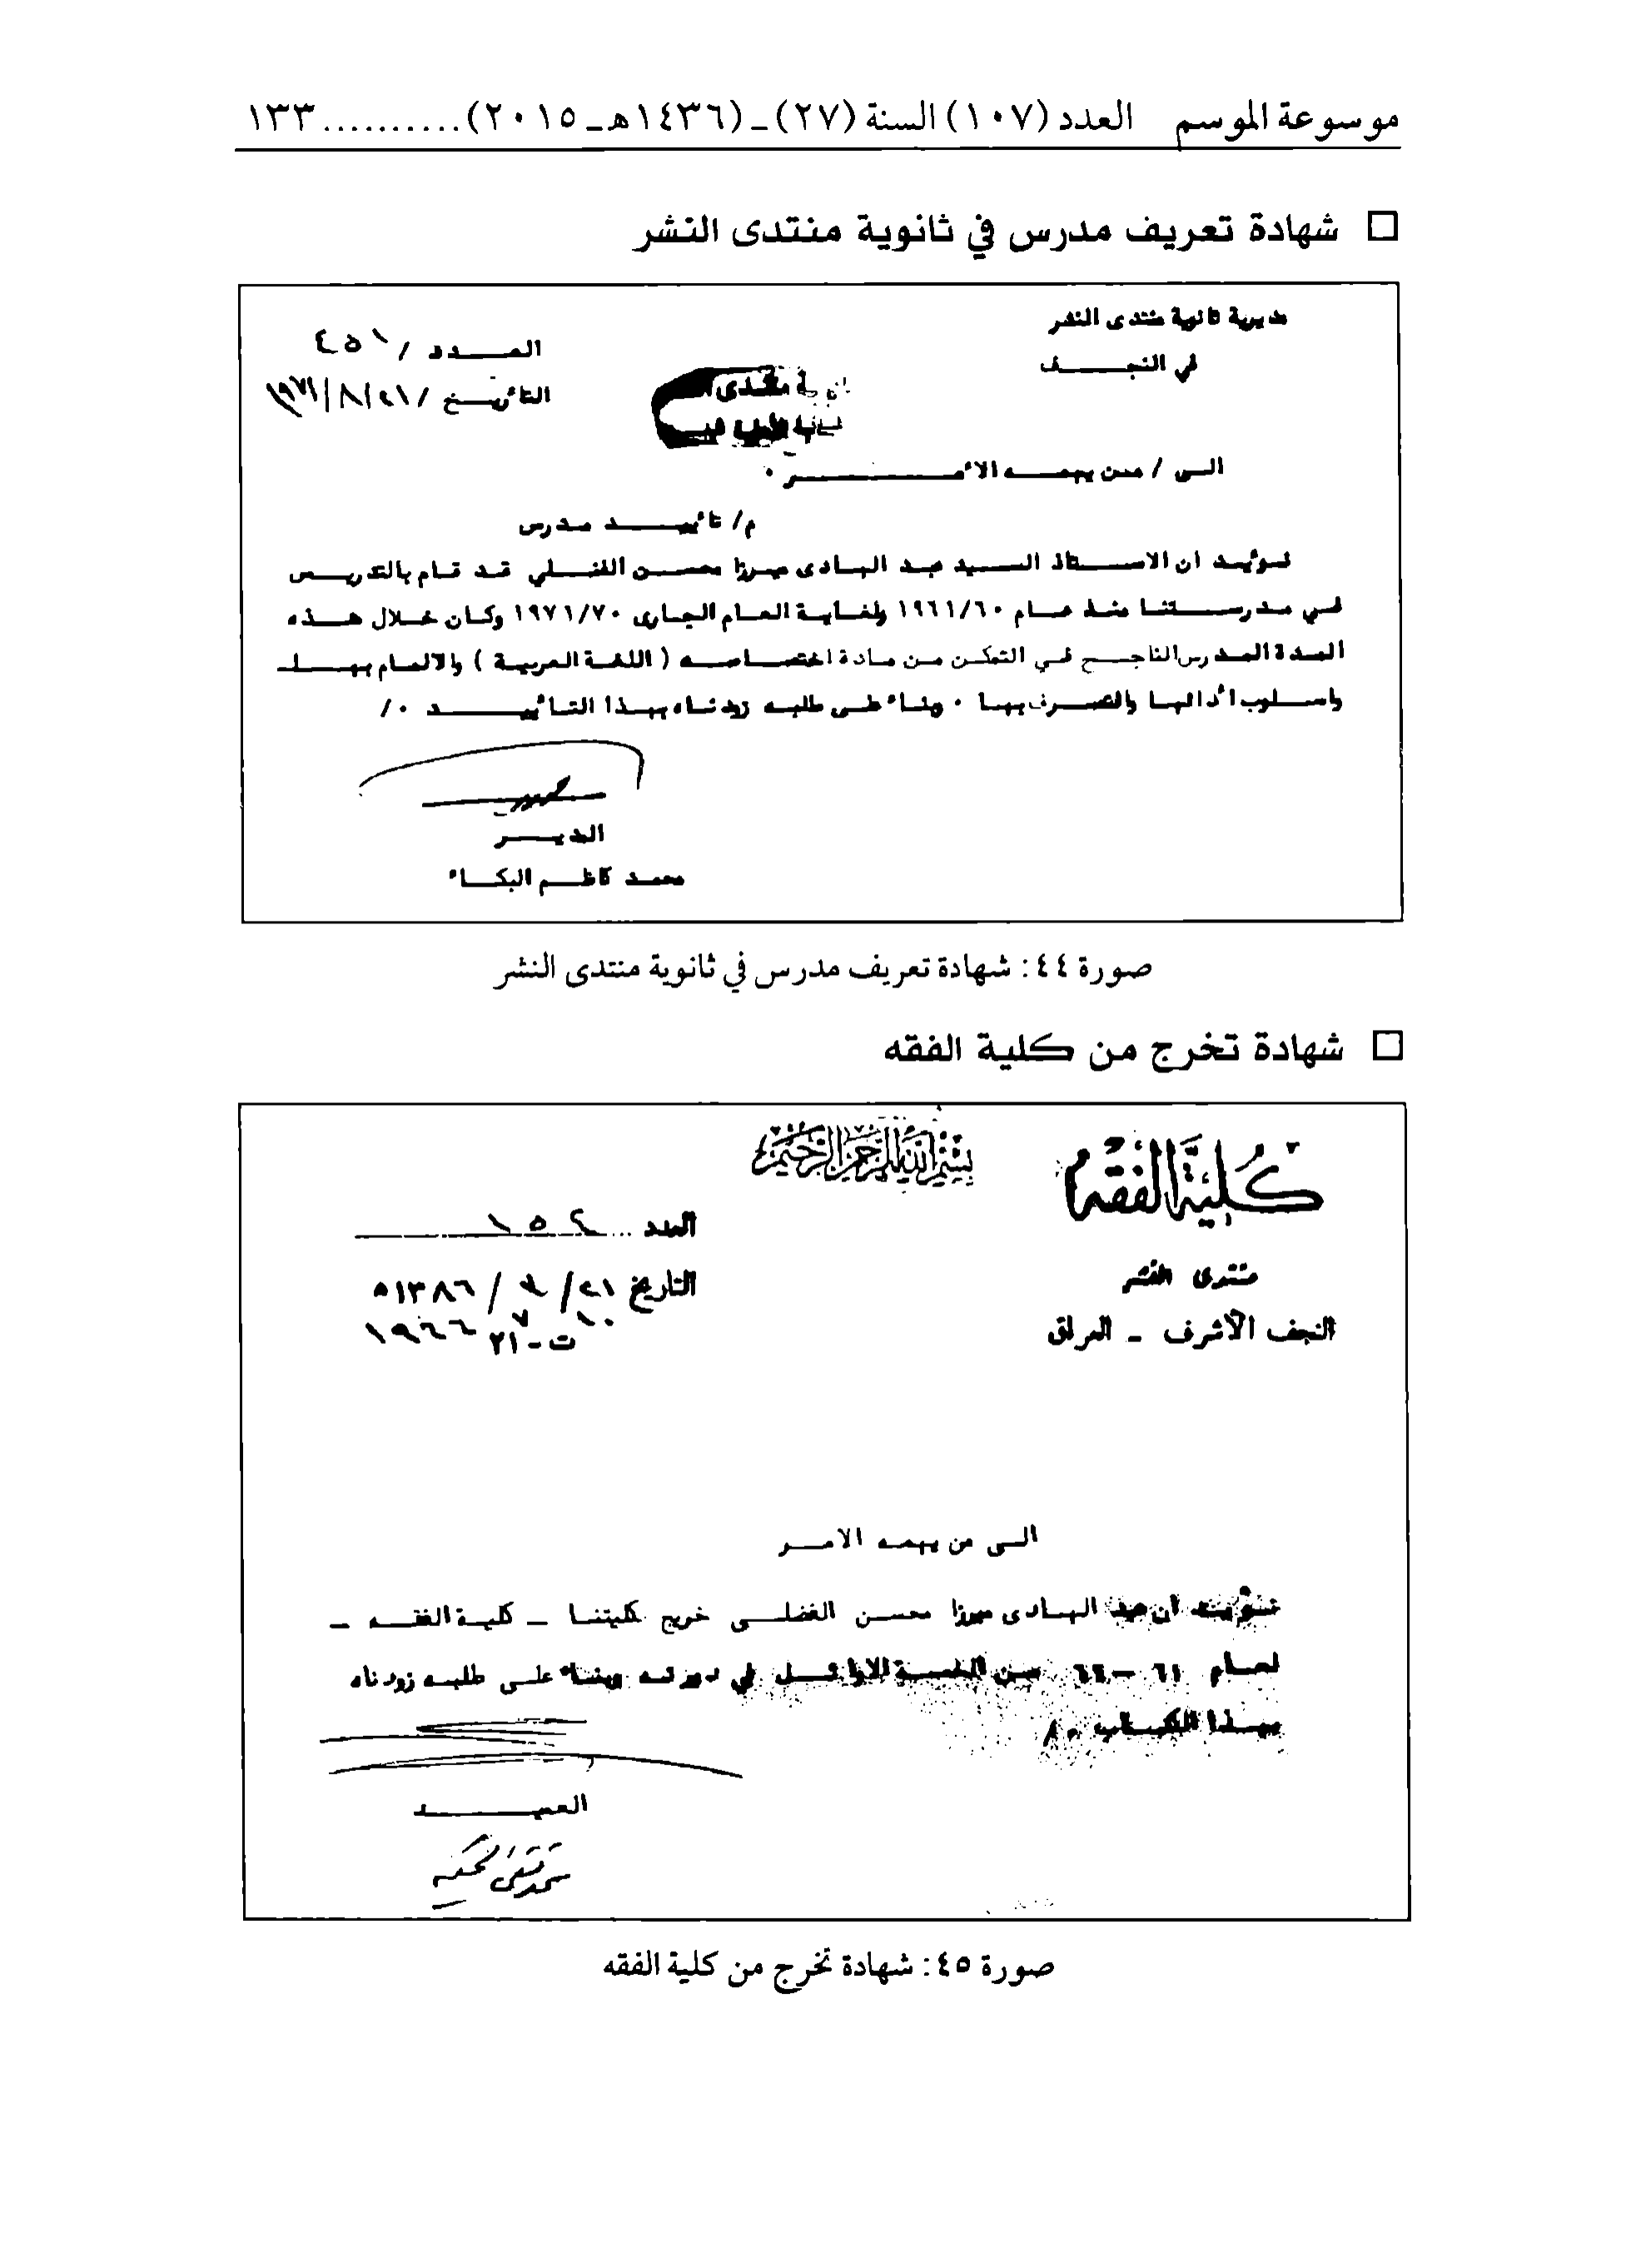 موسوعة الموسم العدد (١٠٧) السنة (٢٧) ـ (١٤٣٦هـ ـ ٢٠١٥) .......... ١٣٣
□ شهادة تعريف مدرس في ثانوية منتدى النشر
مديرية ثانوية منتدى النشر
في النجف
العدد / ٤٥١
التأريخ / ٢١/٨/١٩٧١
الى / من يهمه الأمر ٠
م/ تأييد مدرس
نوئيد ان الاستاذ السيد عبد الهادى ميرزا محسن الفضلي قد قام بالتدريس
في مدرستنا منذ عام ١٩٦١/٦٠ ولغاية العام الجارى ١٩٧١/٧٠ وكان خلال هذه
المدة المدرس الناجح في التمكن من مادة اختصاصه ( اللغة العربية ) والالمام بها
واسلوب أدائها والتصرف بها ٠ وبناء على طلبه زودناه بهذا التأييد ٠/
المدير
محمد كاظم البكاء
صورة ٤٤: شهادة تعريف مدرس في ثانوية منتدى النشر
□ شهادة تخرج من كلية الفقه
بسم الله الرحمن الرحيم
كلية الفقه
منتدى النشر
النجف الأشرف - العراق
العدد ١٥٢
التاريخ ٢١/ ٧ / ١٣٨٦ه
١٩٦٦
الى من يهمه الامر
نوئيد ان عبد الهادى ميرزا محسن الفضلى خريج كليتنا - كلية الفقه -
لعام ٦١ - ٦٢ من الخمسة الاوائل في دورته وبناء على طلبه زودناه
بهذا الكتاب ٠/
العميد
محمد تقي الحكيم
صورة ٤٥: شهادة تخرج من كلية الفقه